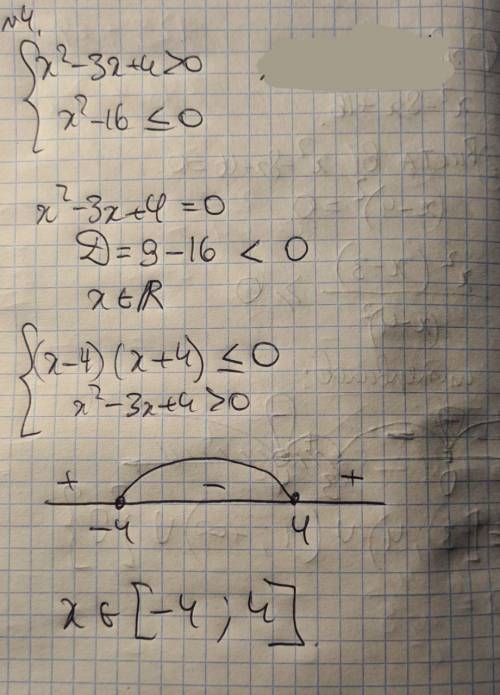 №4.
x²-3x+4>0
x²-16 ≤ 0
x²-3x+4=0
D=9-16 < 0
x∈ℝ
(x-4)(x+4) ≤ 0
x²-3x+4>0
+ - +
-4 4
x∈[-4; 4].